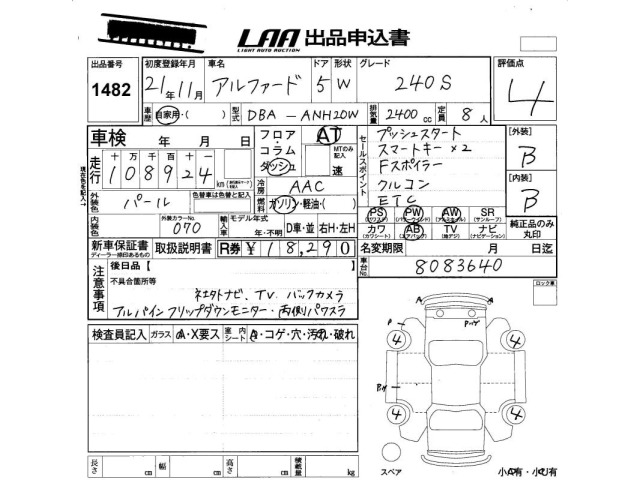 LAA 出品申込書
LIGHT AUTO AUCTION
出品番号 初度登録年月 車名 ドア 形状 グレード 評価点
1482 21年11月 アルファード 5 W 240S 4
車歴 自家用・( ) 型式 DBA-ANH20W 排気量 2400cc 定員 8人
車検 年 月 日 フロア・コラム ダッシュ AT MTのみ記入 速
セールスポイント プッシュスタート
スマートキー×2
Fスポイラー
クルコン
ETC
[外装] B
[内装] B
走行 十 万 千 百 十 一
108924 km
冷房 AAC
外装色 パール 色替車は色替と記入 燃料 ガソリン・軽油・( )
現在色を記入↑
外装カラーNO 070 輸入車 モデル年式 年・不明 D車・並 右H・左H
PS PW AW SR(サンルーフ)
カワ(カワシート) AB(エアバック) TV(地デジ) ナビ(ナビゲーション)
純正品のみ丸印
新車保証書 取扱説明書 R券 ¥18,290 名変期限 月 日迄
ディーラー捺印あるもの
車台No 8083640
注意事項 後日品【 】
不具合箇所等
社外ナビ、TV バックカメラ
アルパインフリップダウンモニター・両側パワスラ
ロック車
検査員記入 ガラス A・X要ス 室内シート キ・コゲ・穴・汚れ・破れ
A A
P Pハゲ
4 4
4 4
スペア
小A有・小U有
長さ cm 幅 cm 高さ cm 積載量 kg